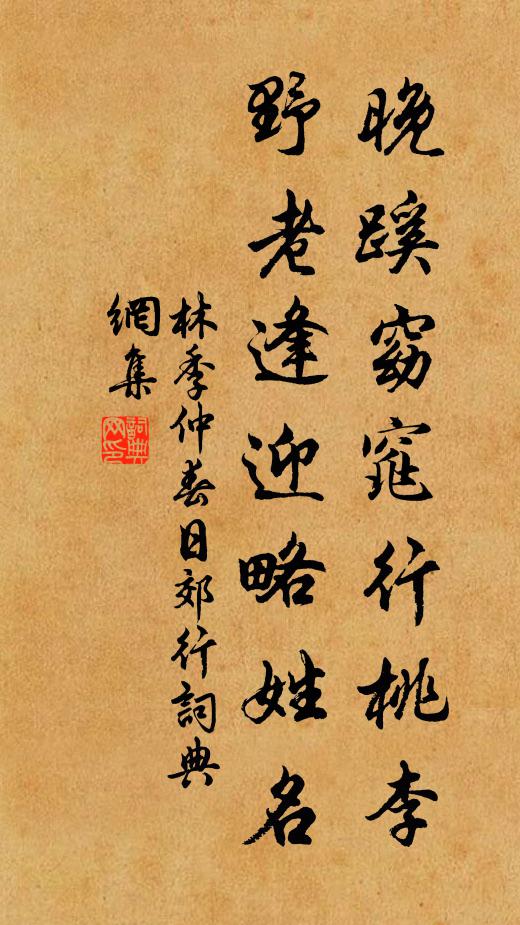 晚蹊窈窕行桃李
野老逢迎略姓名
林季仲春日郊行詞典
網集
詞典
网印